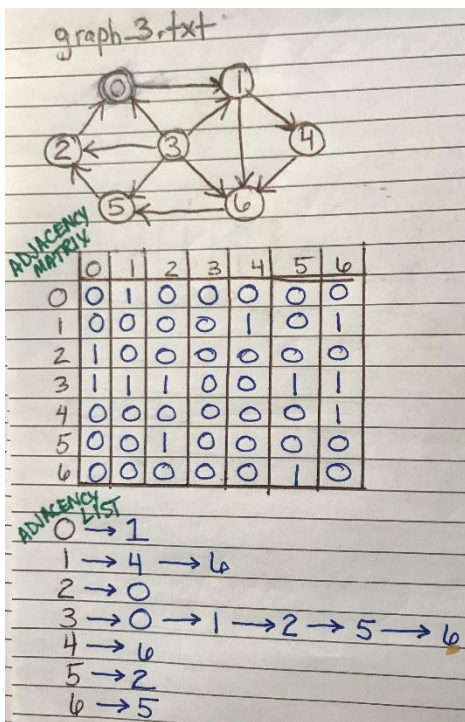 graph_3.txt
0 1
2 3 4
5 6
ADJACENCY
MATRIX
0 1 2 3 4 5 6
0 0 1 0 0 0 0 0
1 0 0 0 0 1 0 1
2 1 0 0 0 0 0 0
3 1 1 1 0 0 1 1
4 0 0 0 0 0 0 1
5 0 0 1 0 0 0 0
6 0 0 0 0 0 1 0
ADJACENCY
LIST
0 → 1
1 → 4 → 6
2 → 0
3 → 0 → 1 → 2 → 5 → 6
4 → 6
5 → 2
6 → 5